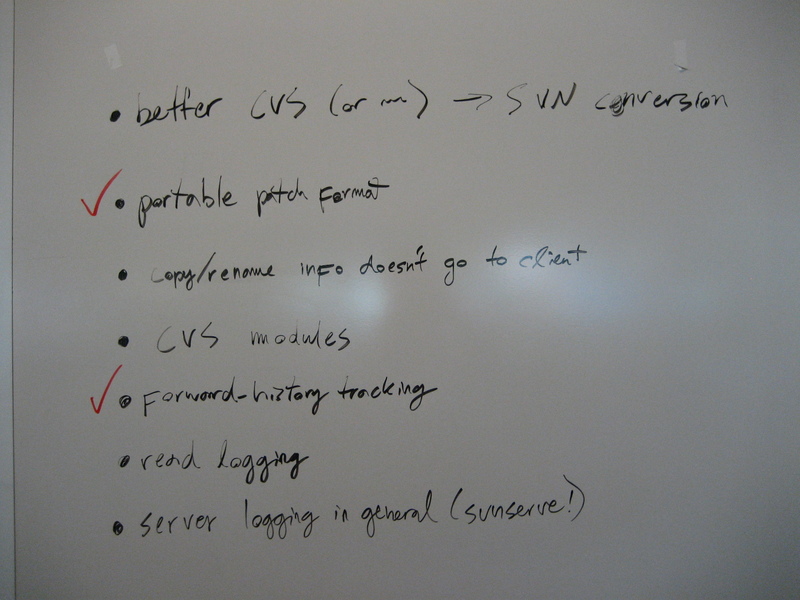 • better CVS (or ) → SVN conversion
✓ • portable patch format
• copy/rename info doesn't go to client
• CVS modules
✓ • Forward-history tracking
• read logging
• server logging in general (svnserve!)